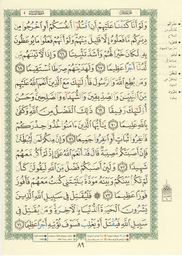 وَلَوْ أَنَّا كَتَبْنَا عَلَيْهِمْ أَنِ اقْتُلُوا أَنفُسَكُمْ أَوِ اخْرُجُوا مِن
دِيَارِكُم مَّا فَعَلُوهُ إِلَّا قَلِيلٌ مِّنْهُمْ وَلَوْ أَنَّهُمْ فَعَلُوا مَا يُوعَظُونَ
بِهِ لَكَانَ خَيْرًا لَّهُمْ وَأَشَدَّ تَثْبِيتًا ٦٦ وَإِذًا لَّآتَيْنَاهُم
مِّن لَّدُنَّا أَجْرًا عَظِيمًا ٦٧ وَلَهَدَيْنَاهُمْ صِرَاطًا مُّسْتَقِيمًا ٦٨
وَمَن يُطِعِ اللَّهَ وَالرَّسُولَ فَأُولَٰئِكَ مَعَ الَّذِينَ أَنْعَمَ اللَّهُ عَلَيْهِم
مِّنَ النَّبِيِّينَ وَالصِّدِّيقِينَ وَالشُّهَدَاءِ وَالصَّالِحِينَ وَحَسُنَ
أُولَٰئِكَ رَفِيقًا ٦٩ ذَٰلِكَ الْفَضْلُ مِنَ اللَّهِ وَكَفَىٰ بِاللَّهِ
عَلِيمًا ٧٠ يَا أَيُّهَا الَّذِينَ آمَنُوا خُذُوا حِذْرَكُمْ
فَانفِرُوا ثُبَاتٍ أَوِ انفِرُوا جَمِيعًا ٧١ وَإِنَّ مِنكُمْ لَمَن لَّيُبَطِّئَنَّ
فَإِنْ أَصَابَتْكُم مُّصِيبَةٌ قَالَ قَدْ أَنْعَمَ اللَّهُ عَلَيَّ إِذْ لَمْ أَكُن مَّعَهُمْ
شَهِيدًا ٧٢ وَلَئِنْ أَصَابَكُمْ فَضْلٌ مِّنَ اللَّهِ لَيَقُولَنَّ كَأَن
لَّمْ تَكُن بَيْنَكُمْ وَبَيْنَهُ مَوَدَّةٌ يَا لَيْتَنِي كُنتُ مَعَهُمْ فَأَفُوزَ
فَوْزًا عَظِيمًا ٧٣ فَلْيُقَاتِلْ فِي سَبِيلِ اللَّهِ الَّذِينَ
يَشْرُونَ الْحَيَاةَ الدُّنْيَا بِالْآخِرَةِ وَمَن يُقَاتِلْ فِي
سَبِيلِ اللَّهِ فَيُقْتَلْ أَوْ يَغْلِبْ فَسَوْفَ نُؤْتِيهِ أَجْرًا عَظِيمًا ٧٤
٨٩